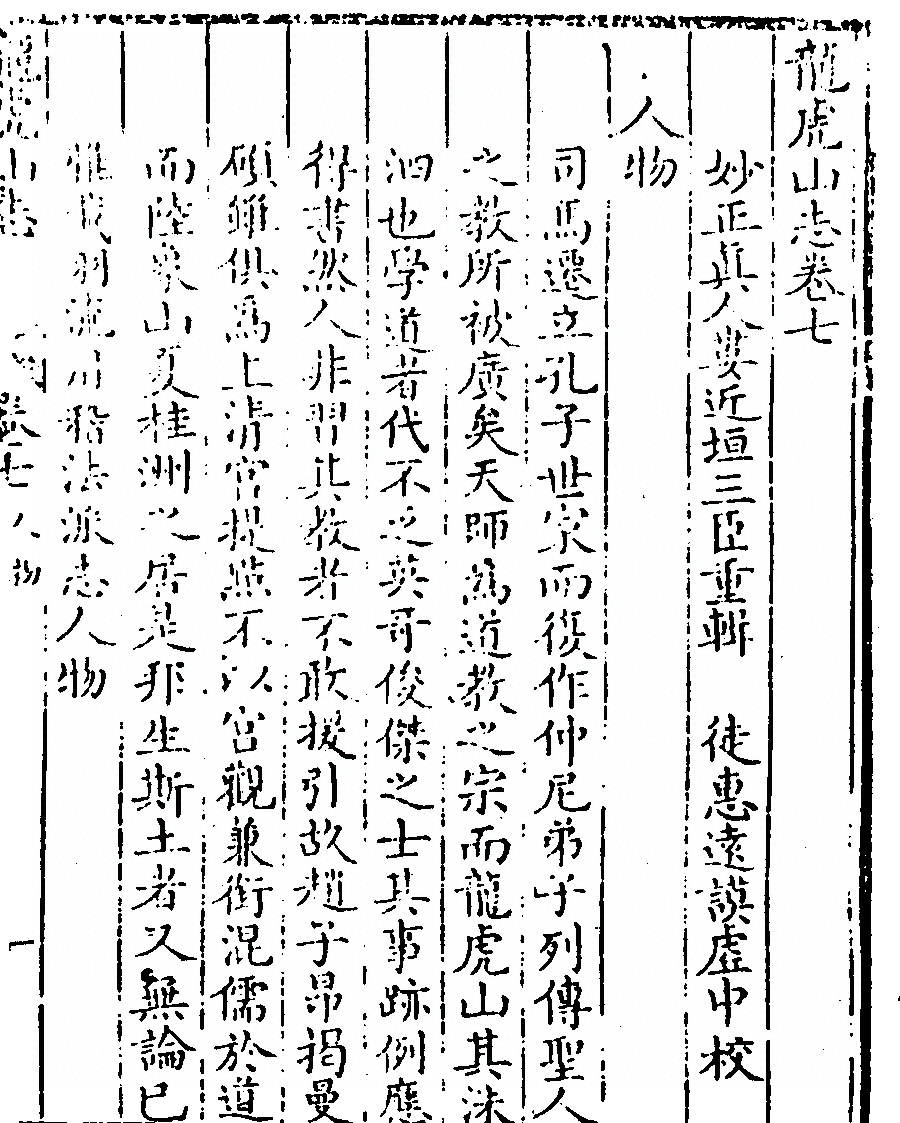 龍虎山志卷七
妙正真人婁近垣三臣重輯　徒惠遠謨虛中校
人物
司馬遷立孔子世家而復作仲尼弟子列傳聖人
之教所被廣矣天師爲道教之宗而龍虎山其洙
泗也學道者代不乏英哥俊傑之士其事跡例應
得書然人非習其教者不敢援引故趙子昂揭曼
碩雖俱爲上清宮提點不以宮觀兼銜混儒於道
而陸象山夏桂洲之居是邦生斯土者又無論已
惟載羽流川稽法派志人物
龍虎山志
卷七人物
一